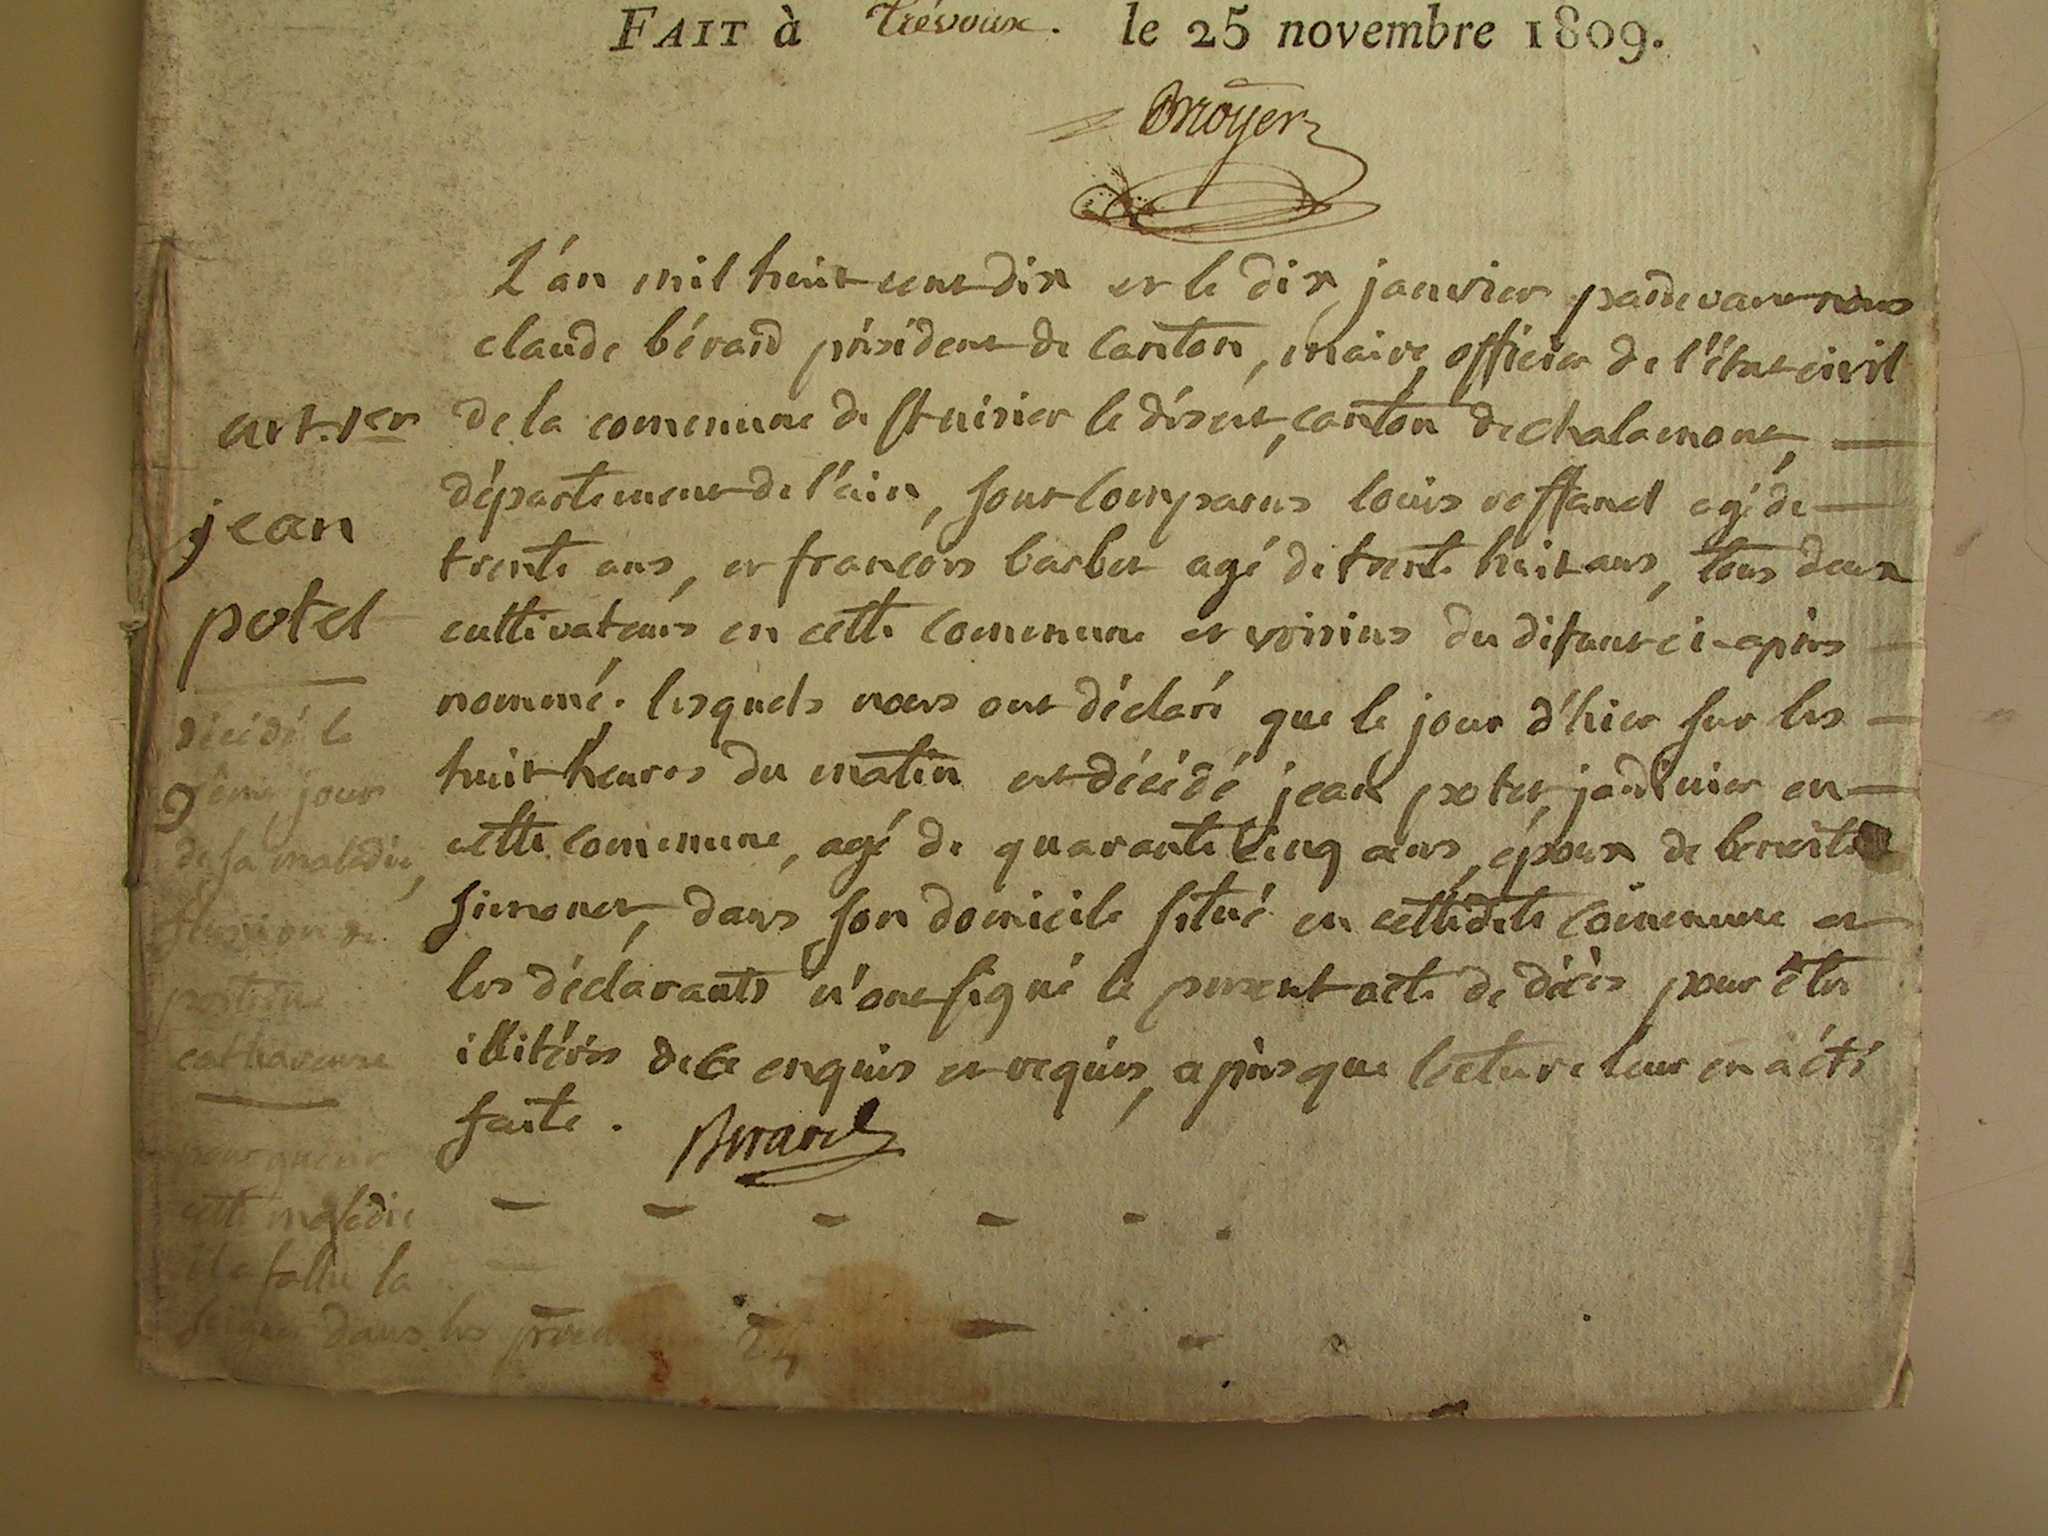 FAIT à Trévoux. le 25 novembre 1809.
L'an mil huit cent dix et le dix janvier pardevant nous
claude bérard président de canton, maire, officier de l'état civil
de la commune de st nisier le désert, canton de chalamont,
département de l'ain, sont comparus louis reffand agé de
trente ans, et françois barbet agé de trente huit ans, tous deux
cultivateurs en cette commune et voisins du défunt ci-après
nommé. lesquels nous ont déclaré que le jour d'hier sur les
huit heures du matin est décédé jean potet, jardinier en
cette commune, agé de quarante cinq ans, époux de benoite
simonet, dans son domicile situé en cette dite commune et
les déclarants n'ont signé le present acte de décès pour être
illitérés de ce enquis et requis, après que lecture leur en a été
faite. Berard
art. 1er
jean
potet
décédé le
9ème jour
de sa maladie,
fluxion de
poitrine
cathareuse
cette maladie
il a fallu la
dans les
24